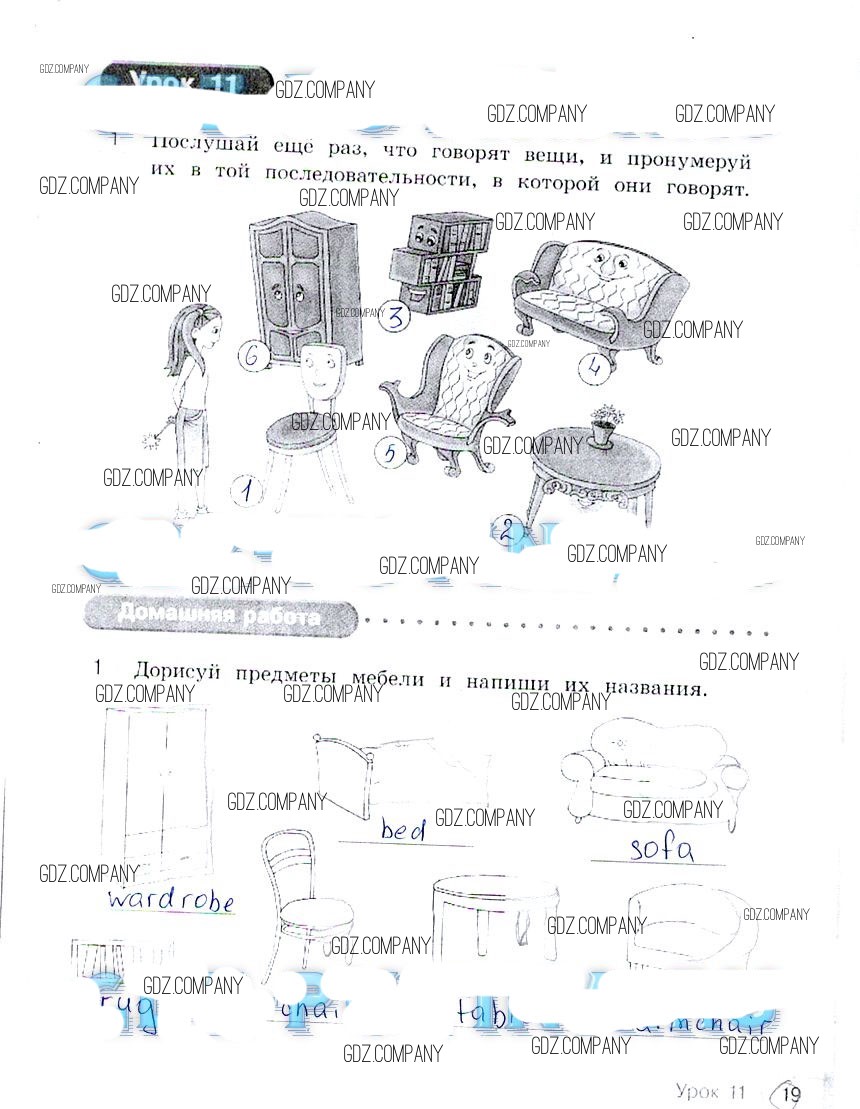 GDZ.COMPANY
Урок 11
GDZ.COMPANY
GDZ.COMPANY
GDZ.COMPANY
1 Послушай еще раз, что говорят вещи, и пронумеруй
их в той последовательности, в которой они говорят.
GDZ.COMPANY
GDZ.COMPANY
GDZ.COMPANY
GDZ.COMPANY
GDZ.COMPANY
GDZ.COMPANY
3
GDZ.COMPANY
GDZ.COMPANY
6
4
GDZ.COMPANY
GDZ.COMPANY
GDZ.COMPANY
5
GDZ.COMPANY
1
2
GDZ.COMPANY
GDZ.COMPANY
GDZ.COMPANY
GDZ.COMPANY
GDZ.COMPANY
Домашняя работа
GDZ.COMPANY
1 Дорисуй предметы мебели и напиши их названия.
GDZ.COMPANY
GDZ.COMPANY
GDZ.COMPANY
GDZ.COMPANY
GDZ.COMPANY
GDZ.COMPANY
bed
sofa
GDZ.COMPANY
wardrobe
GDZ.COMPANY
GDZ.COMPANY
GDZ.COMPANY
GDZ.COMPANY
rug
GDZ.COMPANY
GDZ.COMPANY
GDZ.COMPANY
Урок 11 19